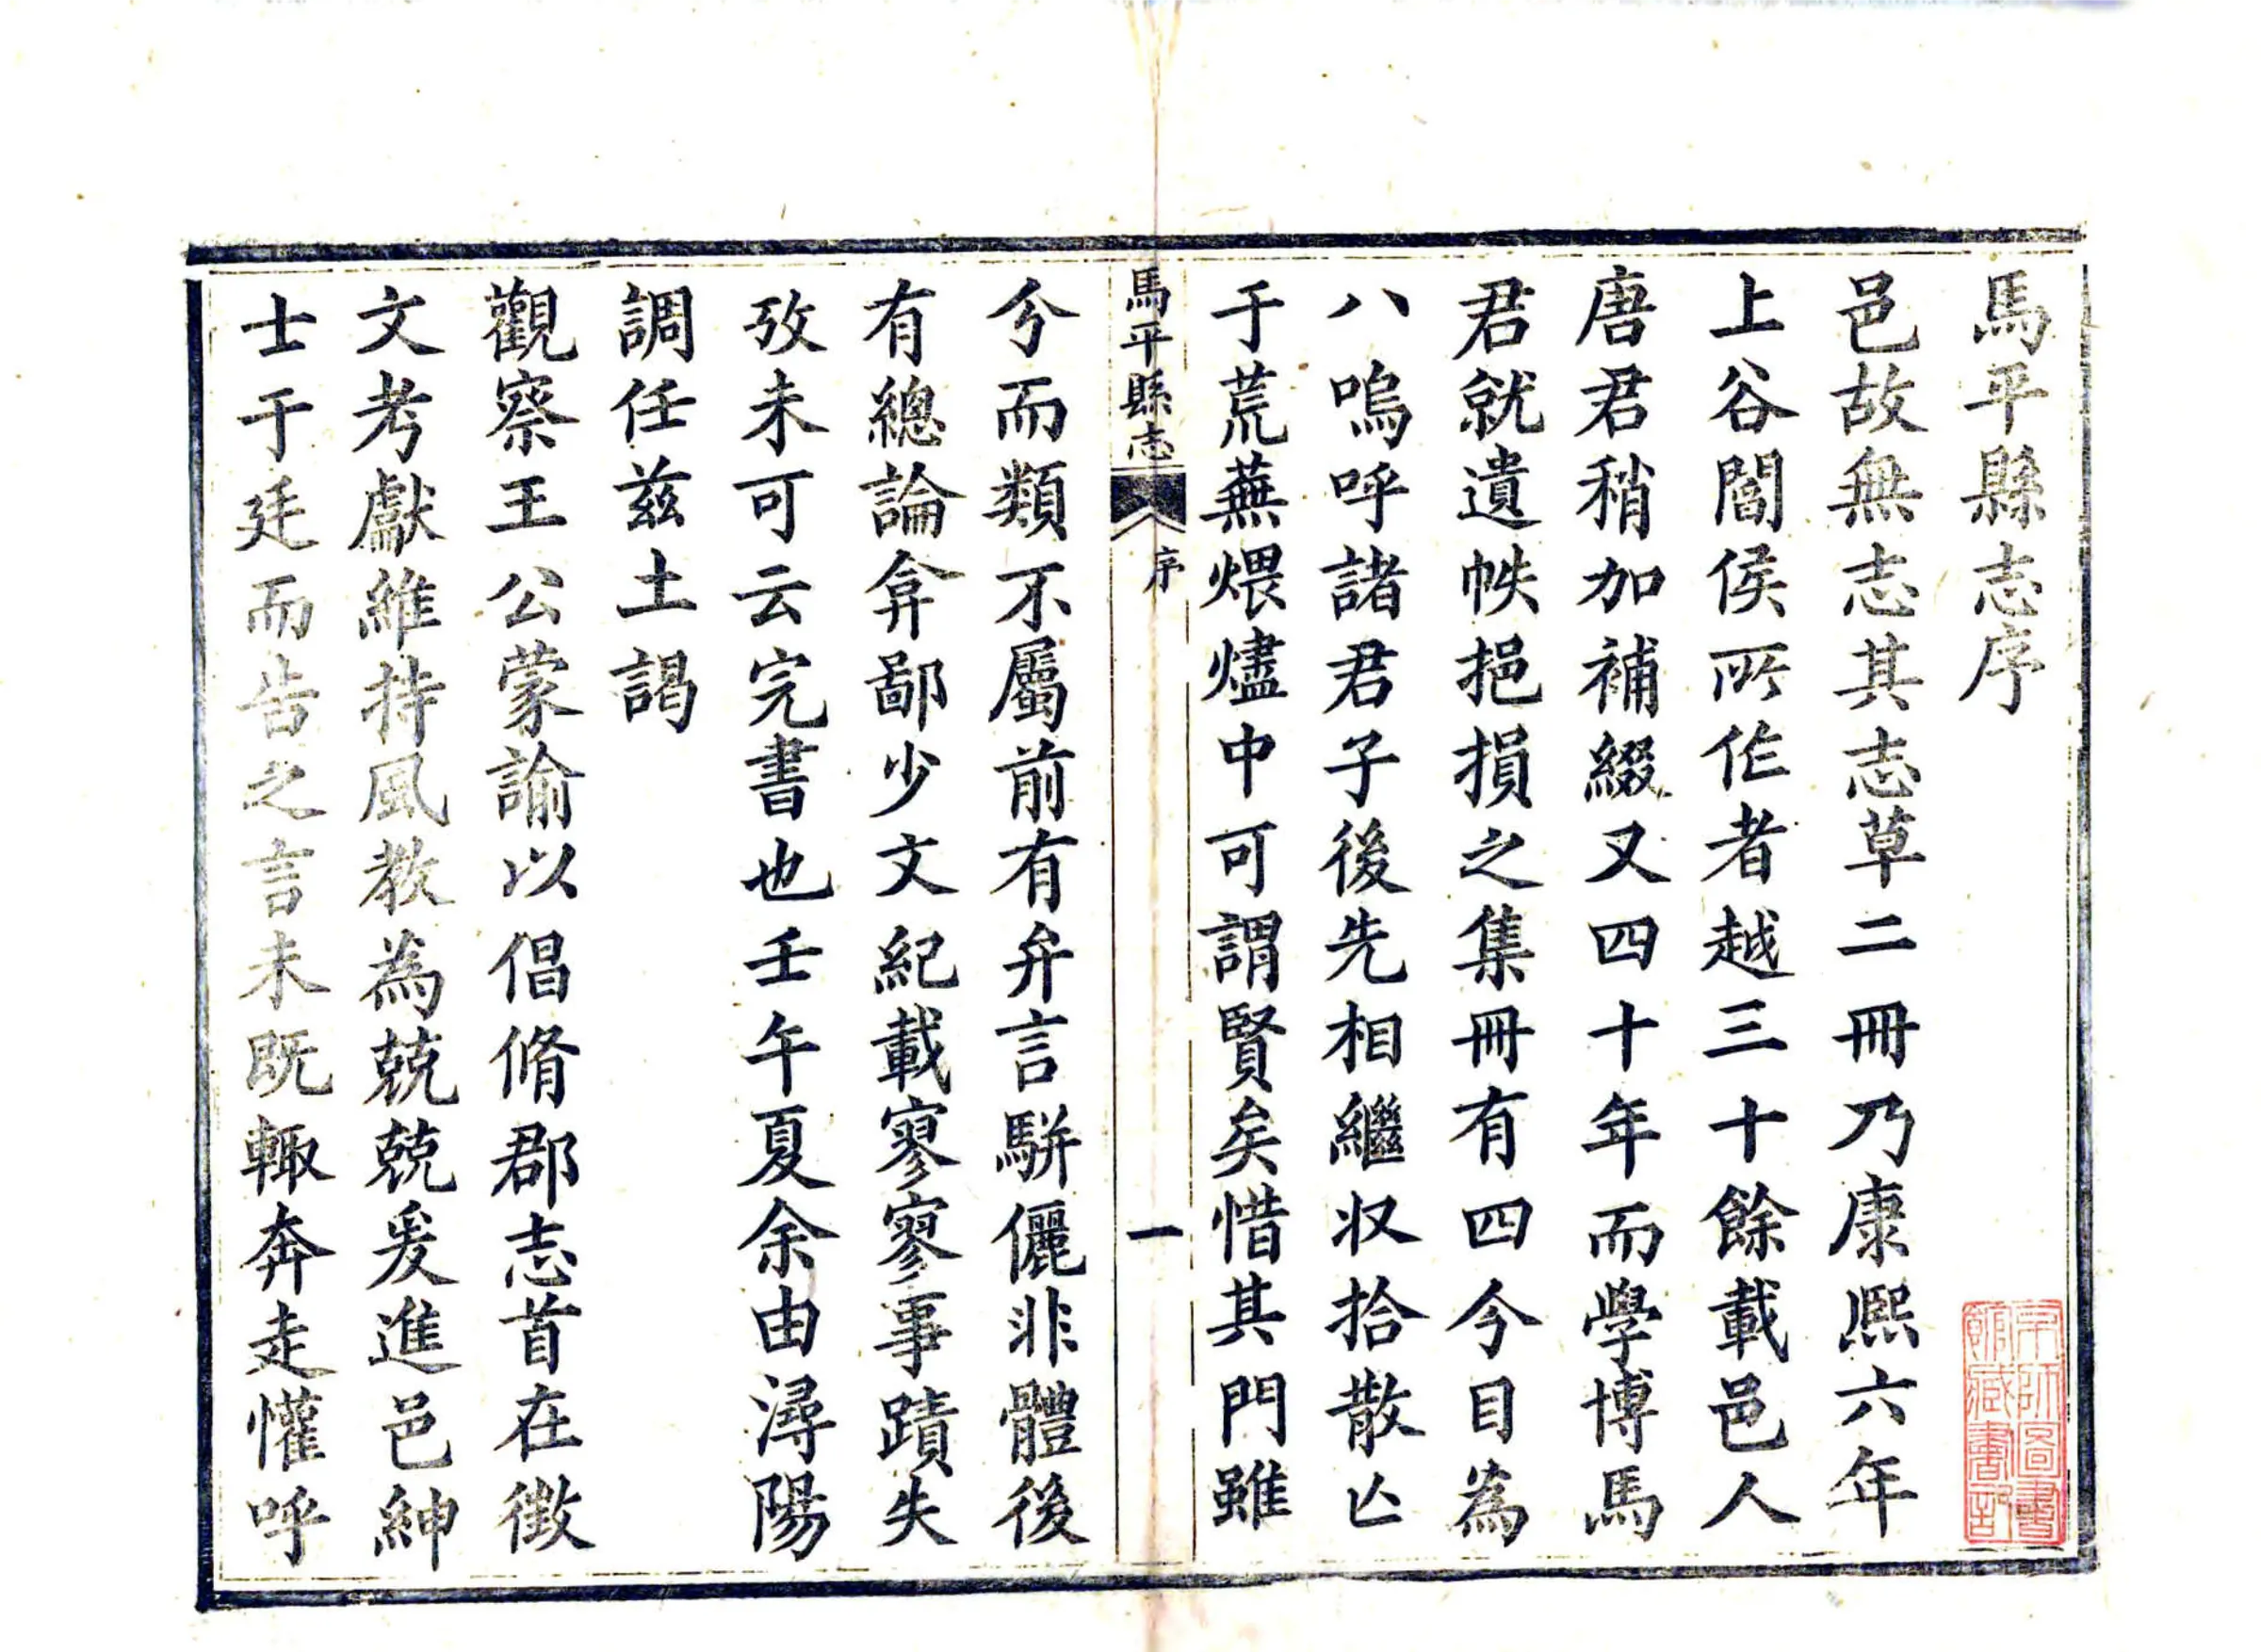 馬平縣志序
邑故無志其志草二冊乃康熙六年
上谷閻侯所作者越三十餘載邑人
唐君稍加補綴又四十年而學博馬
君就遺帙挹損之集冊有四今目為
八嗚呼諸君子後先相繼収拾散亾
于荒蕪煨燼中可謂賢矣惜其門雖
馬平縣志
序
一
分而類不屬前有弁言駢儷非體後
有總論弇鄙少文紀載寥寥事蹟失
攷未可云完書也壬午夏余由潯陽
調任茲土謁
觀察王公蒙諭以倡脩郡志首在徵
文考獻維持風教為兢兢爰進邑紳
士于廷而告之言未既輙奔走懽呼
京師圖書
館藏書記